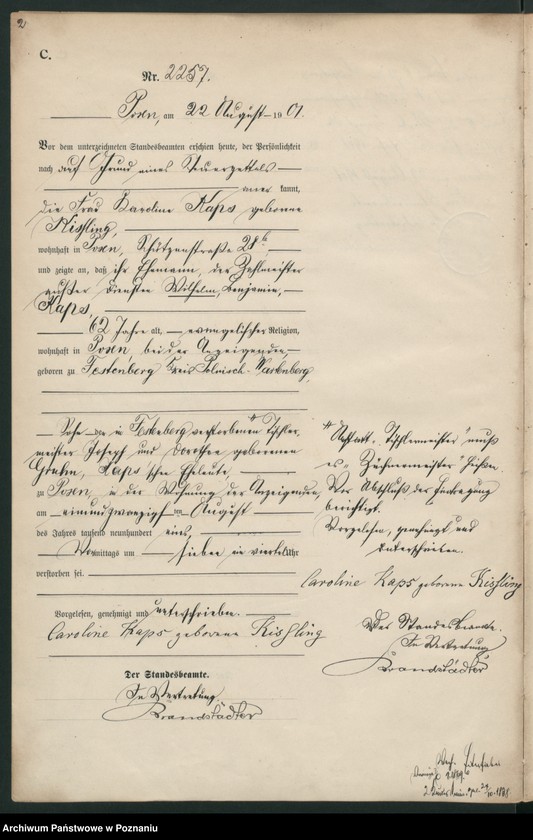 2
C.
Nr. 2257.
Posen, am 22 August 1901.
Vor dem unterzeichneten Standesbeamten erschien heute, der Persönlichkeit
nach auf Grund eines Steuerzettels
anerkannt,
die Frau Karoline Kaps geborene
Kissling,
wohnhaft in Posen, Schützenstraße 28b,
und zeigte an, daß ihr Ehemann, der Zahlmeister
außer Diensten Wilhelm, Benjamin,
Kaps,
62 Jahre alt, evangelischer Religion,
wohnhaft in Posen, bei der Anzeigenden,
geboren zu Festenberg Kreis Polnisch-Wartenberg,
Sohn der in Festenberg verstorbenen Tischler-
meister Joseph und Dorothee geborenen
Kaps'schen Eheleute,
zu Posen, in der Wohnung der Anzeigenden,
am einundzwanzigsten August
des Jahres tausend neunhundert eins,
Vormittags um sieben ein viertel Uhr
verstorben sei.
Vorgelesen, genehmigt und unterschrieben.
Caroline Kaps geborene Kissling
Der Standesbeamte.
In Vertretung
Brandstädter
Anstatt "Tischlermeister" muß
es "Züchnermeister" heißen.
Vor Abschluß der Eintragung
berichtigt.
Vorgelesen, genehmigt und
unterschrieben.
Caroline Kaps geborene Kissling
Der Standesbeamte.
In Vertretung
Brandstädter
Archiwum Państwowe w Poznaniu